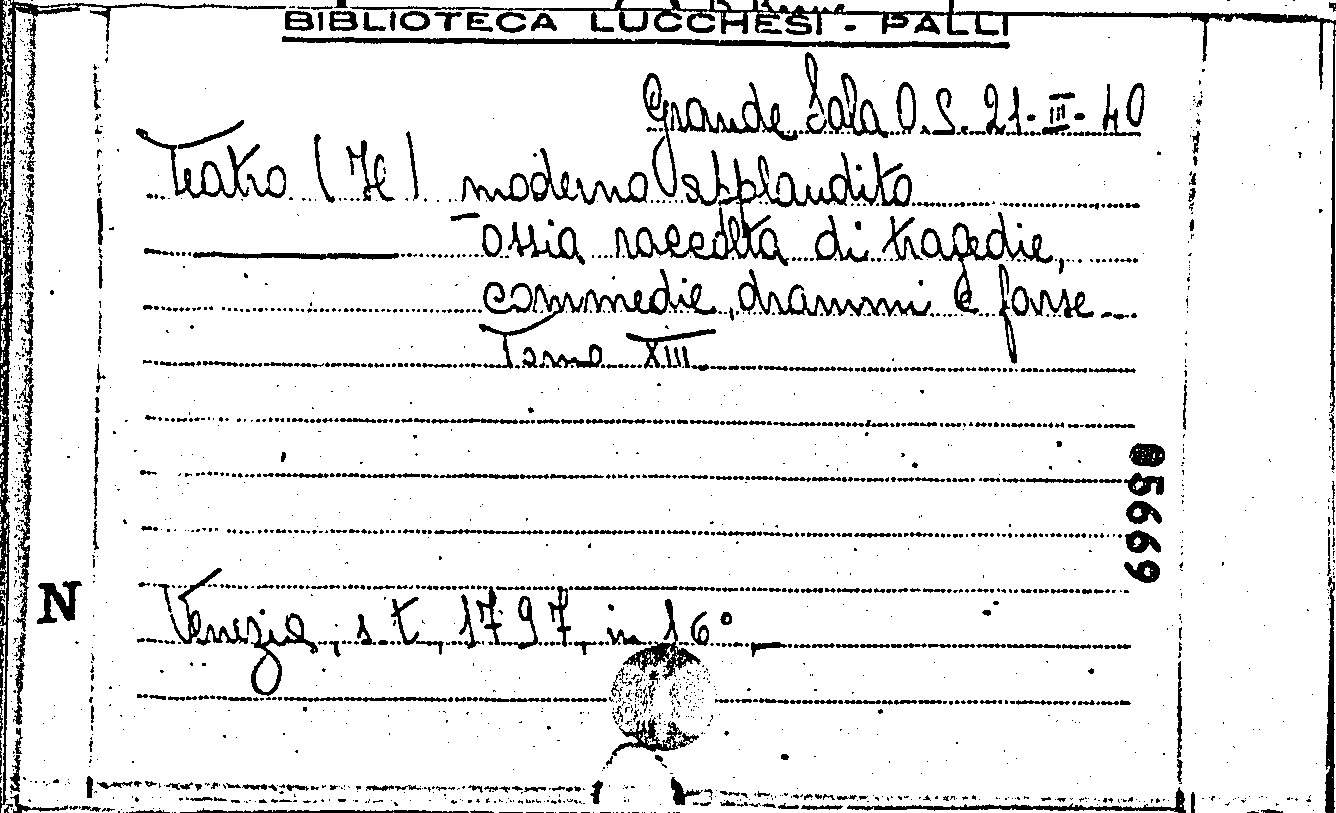 BIBLIOTECA LUCCHESI - PALLI
Grande Sala O.S. 21-III-40
Teatro (Il) moderno applaudito
ossia raccolta di tragedie,
commedie, drammi e farse
Tomo XIII
85669
N
Venezia, s.t., 1797, in 16°